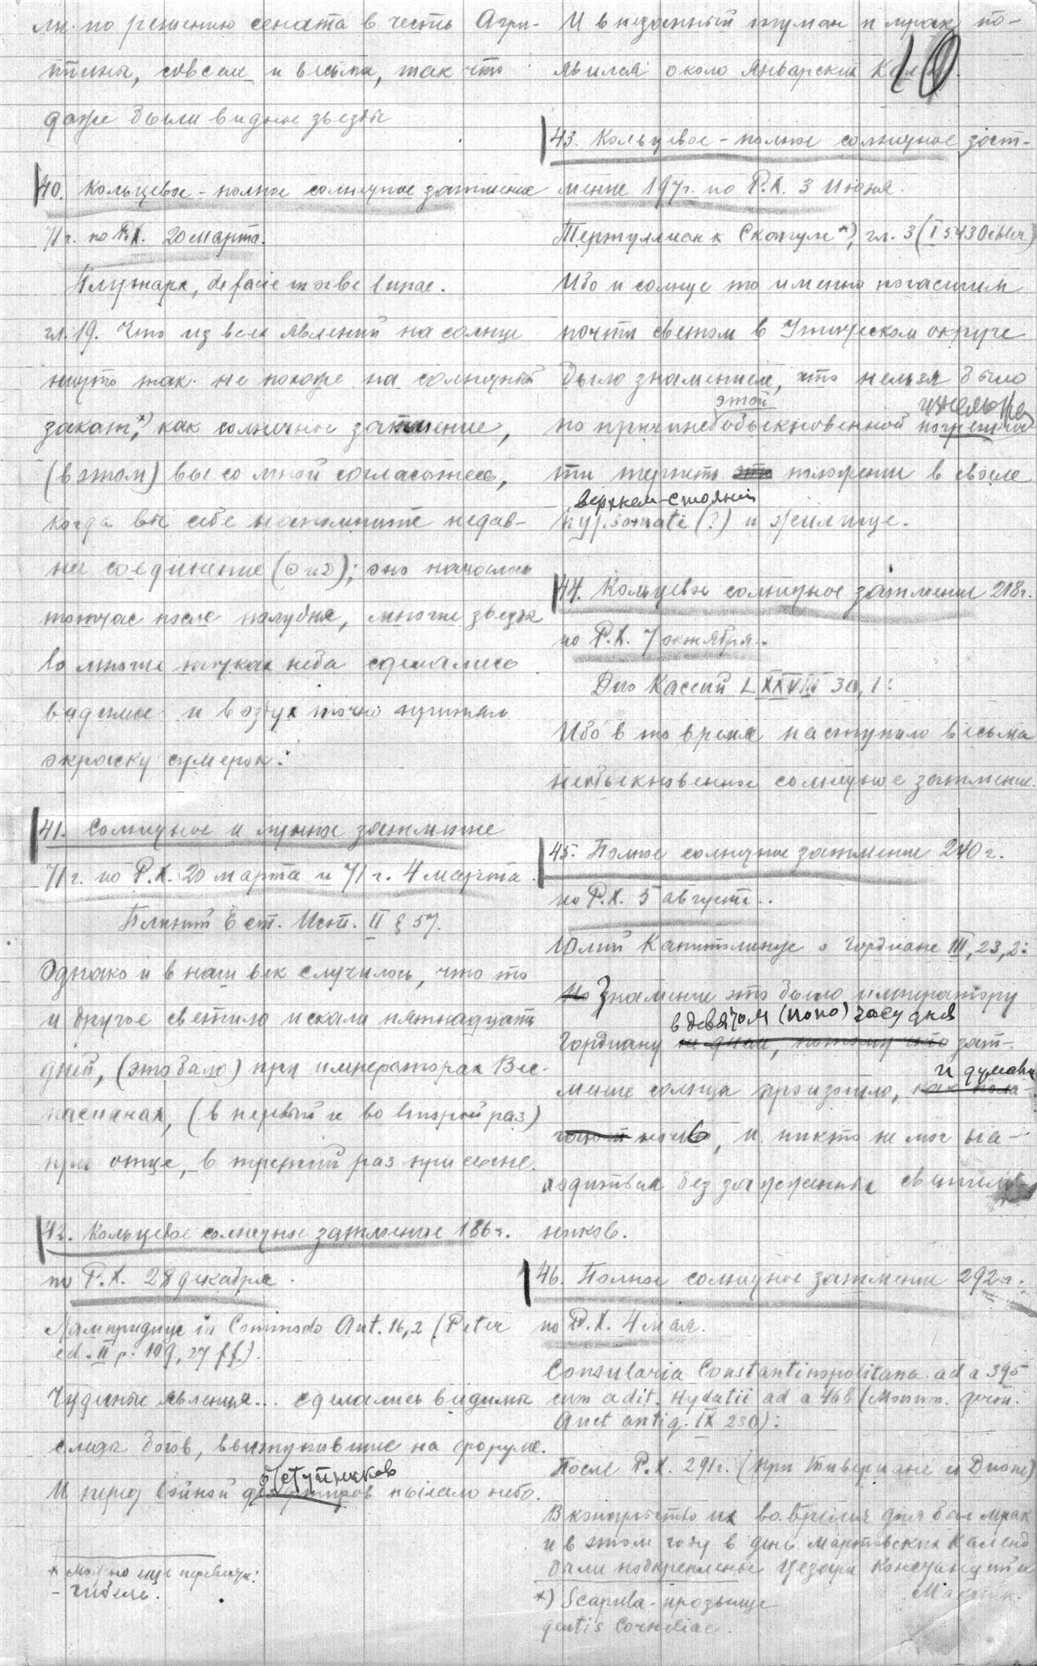 ли по решению сената в честь Агри-
ппины, совсем и весьма, так что
даже были видны звезды
40. Кольцевое-полное солнечное затмение
71 г. по Р.Х. 20 марта.
Плутарх, de facie in orbe lunae.
гл. 19. Что из всех явлений на солнце
ничто так не похоже на солнечный
закат,*) как солнечное затмение,
(в этом) вы со мной согласитесь,
когда вы себе напомните недав-
нее соединение (☉ и ☽); оно началось
тотчас после полудня, многие звезды
во многих точках неба сделались
видимые и воздух точно принял
окраску сумерок.
41. Солнечное и лунное затмение
71 г. по Р.Х. 20 марта и 71 г. 4 марта
Плиний Ест. Ист. II § 57.
Однако и в наш век случилось, что то
и другое светило искали пятнадцать
дней, (это было) при императорах Вес-
пасианах, (в первый и во второй раз)
при отце, в третий раз при сыне.
42. Кольцевое солнечное затмение 186 г.
по Р.Х. 28 декабря.
Лампридиус in Commodo Ant. 16,2 (Peter
ed. II p. 109, 27 ff).
Чудные явления... сделались видимы
следы богов, выступившие на форуме.
отступников
И перед войной пылало небо.
* Можно еще перевести:
- гибель.
И внезапный туман и мрак по-
явился около Январских Календ.
10
43. Кольцевое-полное солнечное зат-
мение 197 г. по Р.Х. 3 Июня.
Тертуллиан к Скапуле*), гл. 3 (I 543 Oehler)
Ибо и солнце то именно погасшим
почти светом в Утическом округе
было знамением, что нельзя было
этой
по причине обыкновенной
терпеть положении в своем
верхнем стоянии
hypsomate (?) и жилище.
44. Кольцевое солнечное затмение 218 г.
по Р.Х. 7 октября.
Дио Кассий LXXVIII 30,1:
Ибо в то время наступило весьма
необыкновенное солнечное затмение.
45. Полное солнечное затмение 240 г.
по Р.Х. 5 августа.
Юлий Капитолинус о Гордиане III, 23,2:
Знамение это было императору
в девятом (ноно) часу дня
Гордиану зат-
и думали
мение солнца произошло,
ночь, и никто не мог на-
ходиться без зажжения светиль-
ников.
46. Полное солнечное затмение 292 г.
по Р.Х. 4 мая.
Consularia Constantinopolitana ad a 395
cum adit. Hydatii ad a 468 (Monum. germ.
Auct antiq. IX 230):
После Р.Х. 291 г. (при Тивериане и Дионе)
В консульство их во время дня был мрак
и в этом году в день Мартовских Календ
были Цезари Констанций и
Максим.
*) Scapula-прозвище
gentis Corneliae.